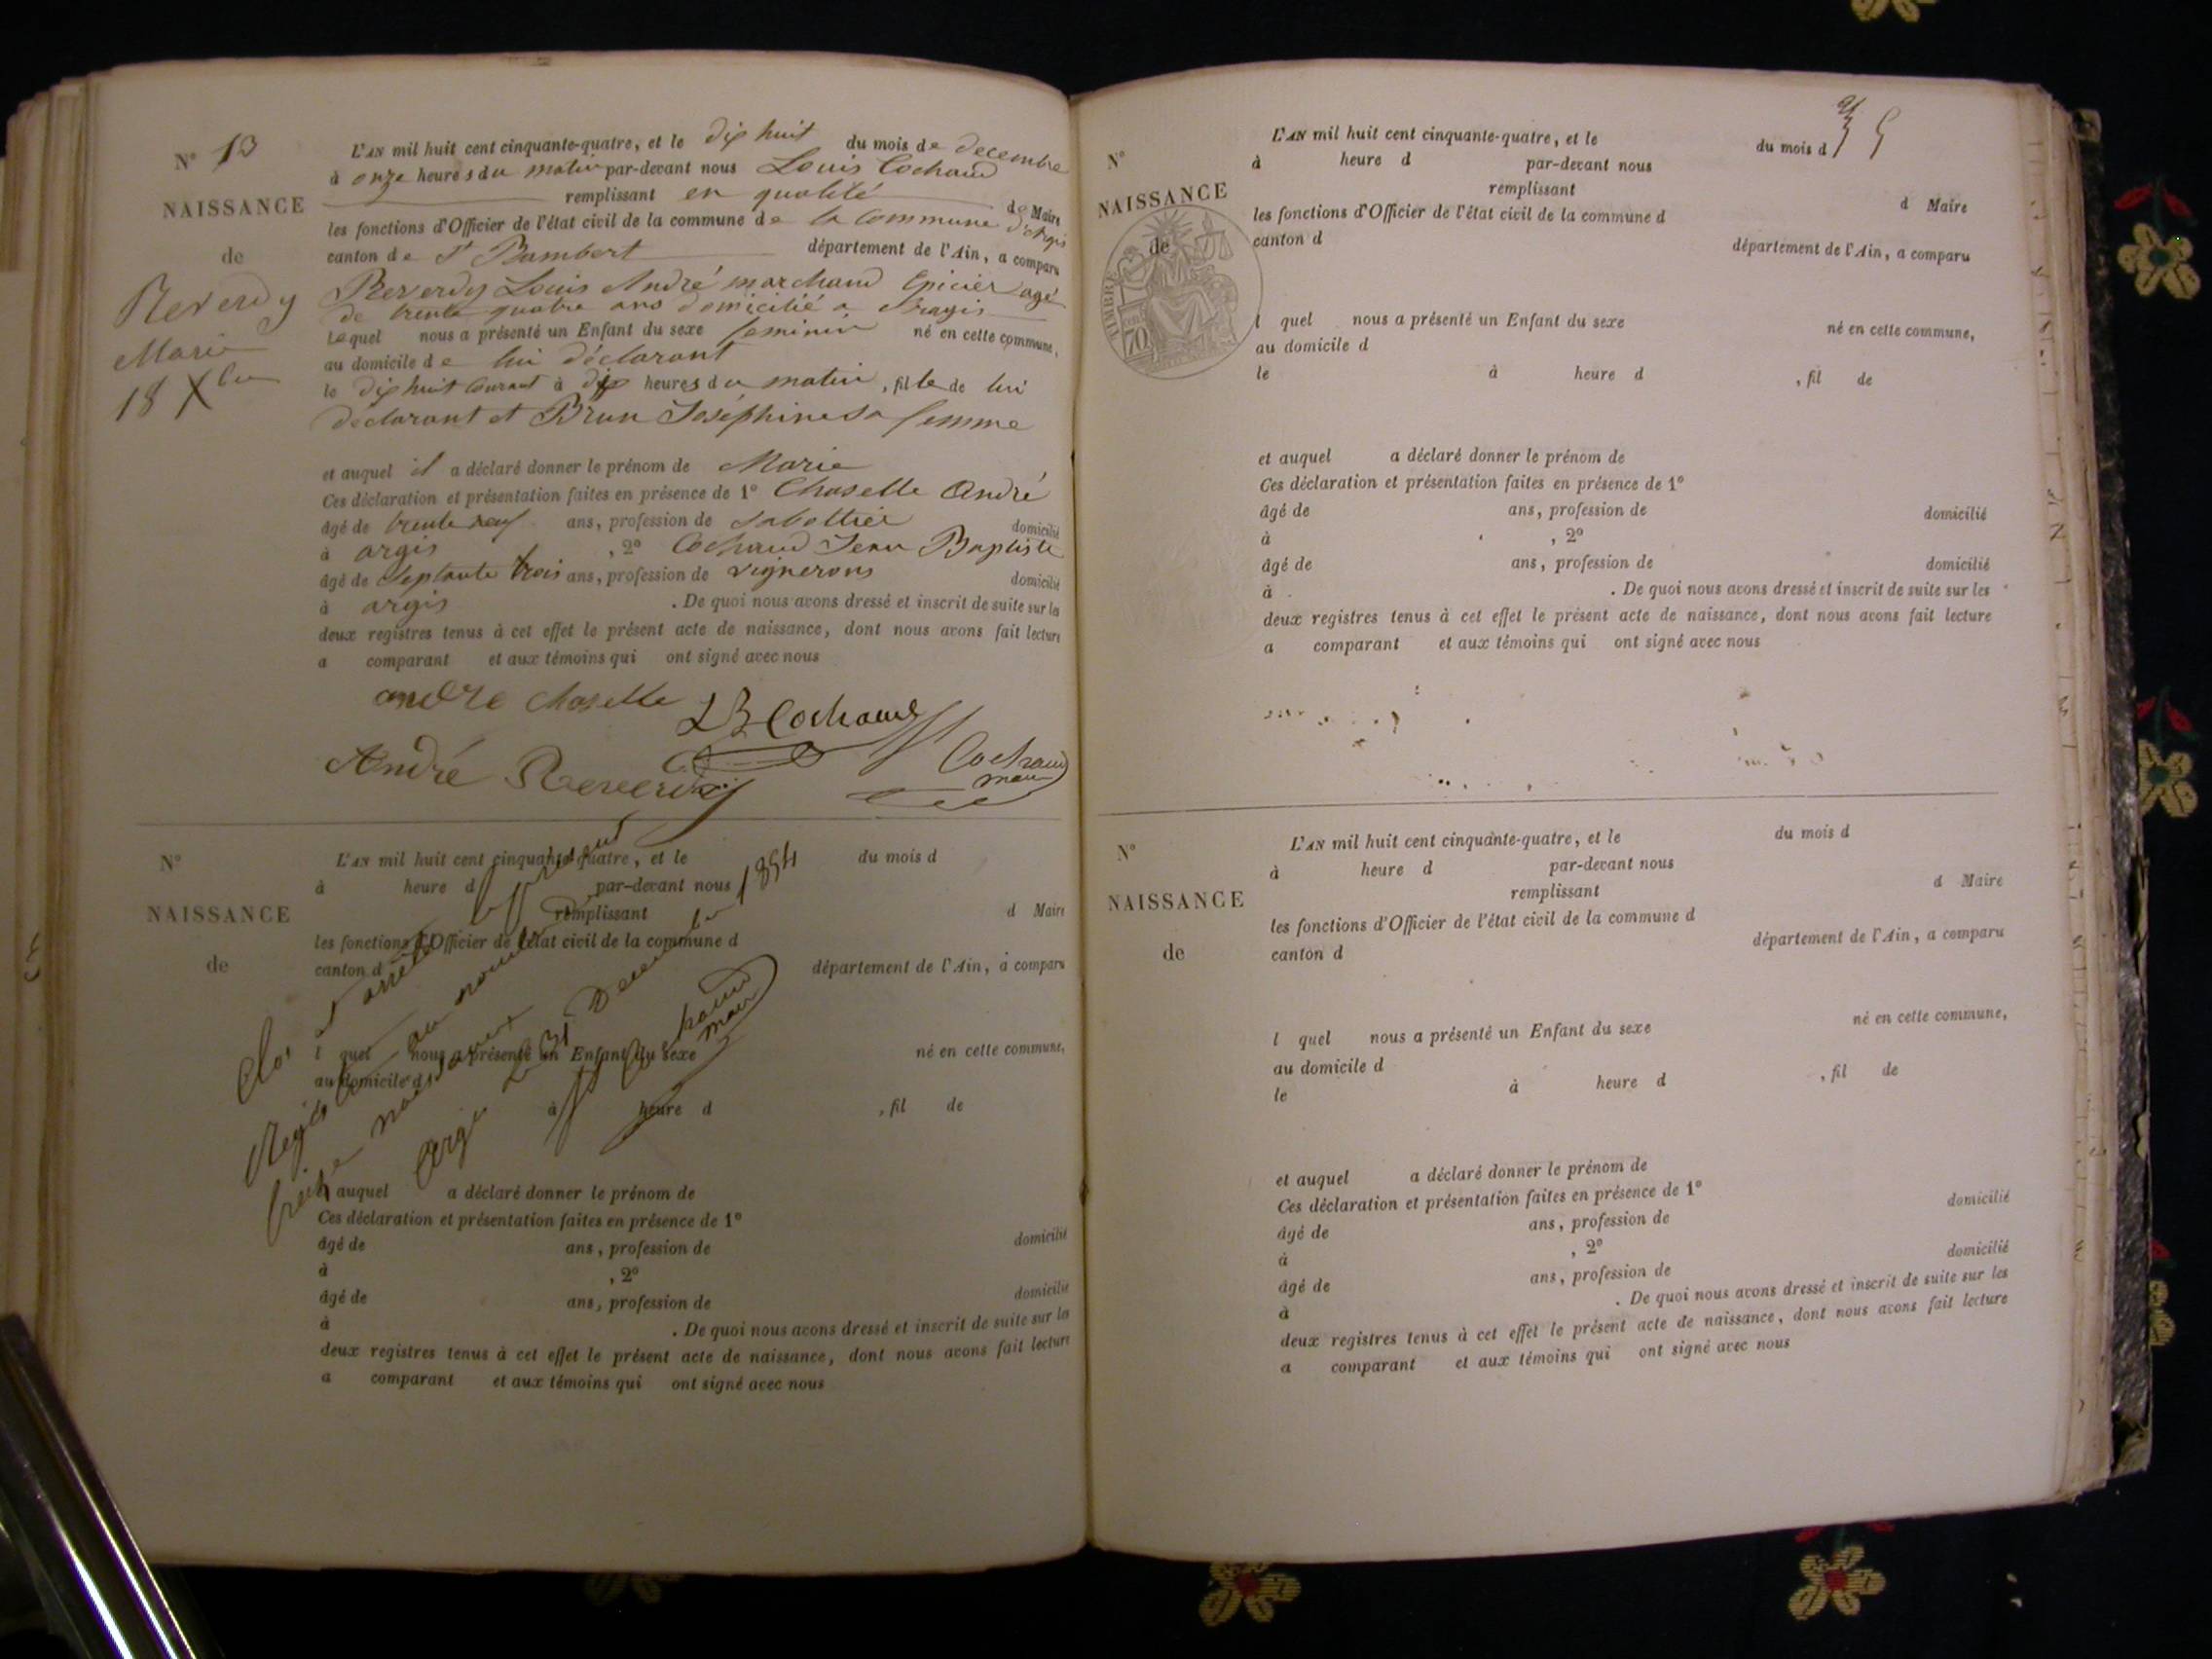 N° 13
NAISSANCE
de
Reverdy
Marie
18 Xbre
L'AN mil huit cent cinquante-quatre, et le dix huit du mois de decembre
à onze heures du matin par-devant nous Louis Cochaud
remplissant en qualité de Maire
les fonctions d'Officier de l'état civil de la commune de la Commune d'argis
canton de St Rambert département de l'Ain, a comparu
Reverdy Louis André marchand Epicier agé
de trente quatre ans domicilié a argis
Lequel nous a présenté un Enfant du sexe feminin né en cette commune,
au domicile de lui déclarant
le dix huit Courant à dix heures du matin, fille de lui
déclarant et Brun Joséphine sa femme
et auquel il a déclaré donner le prénom de Marie
Ces déclaration et présentation faites en présence de 1° Choselle André
âgé de trente neuf ans, profession de Sabottier domicilié
à argis, 2° Cochaud Jean Baptiste
âgé de Septante trois ans, profession de vignerons domicilié
à argis. De quoi nous avons dressé et inscrit de suite sur les
deux registres tenus à cet effet le présent acte de naissance, dont nous avons fait lecture
a comparant et aux témoins qui ont signé avec nous
andré choselle JB Cochaud
André Reverdy Cochaud
maire
N°
NAISSANCE
de
L'AN mil huit cent cinquante-quatre, et le du mois d
à heure d par-devant nous
remplissant d Maire
les fonctions d'Officier de l'état civil de la commune d
canton d département de l'Ain, a comparu
l quel nous a présenté un Enfant du sexe né en cette commune,
au domicile d
à heure d, fil de
et auquel a déclaré donner le prénom de
Ces déclaration et présentation faites en présence de 1°
âgé de ans, profession de domicilié
à, 2°
âgé de ans, profession de domicilié
à. De quoi nous avons dressé et inscrit de suite sur les
deux registres tenus à cet effet le présent acte de naissance, dont nous avons fait lecture
a comparant et aux témoins qui ont signé avec nous
Clos et arrêté le présent
Registre au nombre de
treize naissances
argis le 31 Decembre 1854
Cochaud
maire
N°
NAISSANCE
de
TIMBRE
70
L'AN mil huit cent cinquante-quatre, et le du mois d
à heure d par-devant nous
remplissant d Maire
les fonctions d'Officier de l'état civil de la commune d
canton d département de l'Ain, a comparu
l quel nous a présenté un Enfant du sexe né en cette commune,
au domicile d
le à heure d, fil de
et auquel a déclaré donner le prénom de
Ces déclaration et présentation faites en présence de 1°
âgé de ans, profession de domicilié
à, 2°
âgé de ans, profession de domicilié
à. De quoi nous avons dressé et inscrit de suite sur les
deux registres tenus à cet effet le présent acte de naissance, dont nous avons fait lecture
a comparant et aux témoins qui ont signé avec nous
N°
NAISSANCE
de
L'AN mil huit cent cinquante-quatre, et le du mois d
à heure d par-devant nous
remplissant d Maire
les fonctions d'Officier de l'état civil de la commune d
canton d département de l'Ain, a comparu
l quel nous a présenté un Enfant du sexe né en cette commune,
au domicile d
le à heure d, fil de
et auquel a déclaré donner le prénom de
Ces déclaration et présentation faites en présence de 1°
âgé de ans, profession de domicilié
à, 2°
âgé de ans, profession de domicilié
à. De quoi nous avons dressé et inscrit de suite sur les
deux registres tenus à cet effet le présent acte de naissance, dont nous avons fait lecture
a comparant et aux témoins qui ont signé avec nous